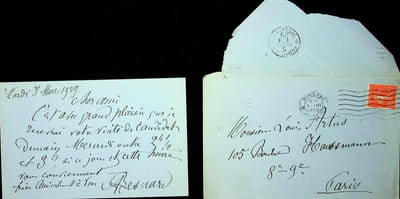 Mardi 3 Mars 1929
Cher ami
C'est avec grand plaisir que je
recevrai votre visite de candidat
Demain Mercredi entre
et 9h si ce jour et cette heure
vous conviennent
bien amicalement
Besnard
Monsieur Louis Artus
105 Boulev Haussmann
8e
Paris